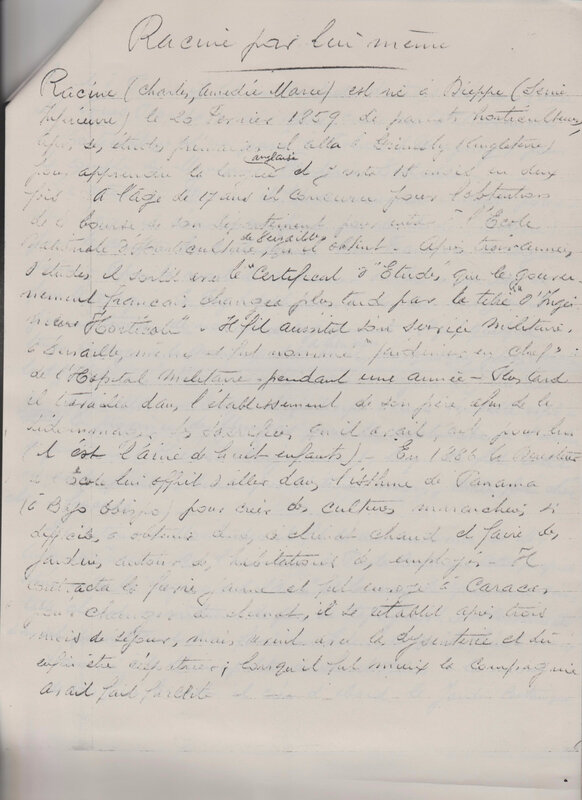 Racine par lui même
Racine (Charles, Amedée Marie) est né à Dieppe (Seine
Inférieure) le 20 Fevrier 1859 de parents horticulteurs
après ses études primaires il alla à Grimsby (Angleterre)
pour apprendre la langue anglaise et y resta 18 mois en deux
fois A l'âge de 17 ans il concourut pour l'obtention
de la bourse de son département pour entrer à l'École
Nationale d'Horticulture de Versailles, et obtint. après trois années
d'études il sortit avec le "Certificat d'Etudes que le gouver-
nement français changea plus tard par le titre d'"Ingé
nieur Horticole". Il fit aussitot son service militaire
à Versailles, même et fut nommé "jardinier en chef"
de l'Hôpital Militaire pendant une année - Plus tard
il travailla dans l'établissement de son père afin de le
sacrifices qu'il avait pour lui
(il est l'aîné de huit enfants). - En 1886 le
l'Ecole lui offrit d'aller dans l'isthme de Panama
(à Bajo Obispo) pour créer des cultures maraichères si
difficiles à obtenir dans ce climat chaud et faire des
jardins autour des habitations des employés - Il
contracta la fievre jaune et fut envoyé à Caracas
pour changer de climat, il se rétablit après trois
mois de séjour, mais avec la dysenterie et dû
enfin être rapatrié; lorsqu'il fut mieux la Compagnie
avait fait faillite et